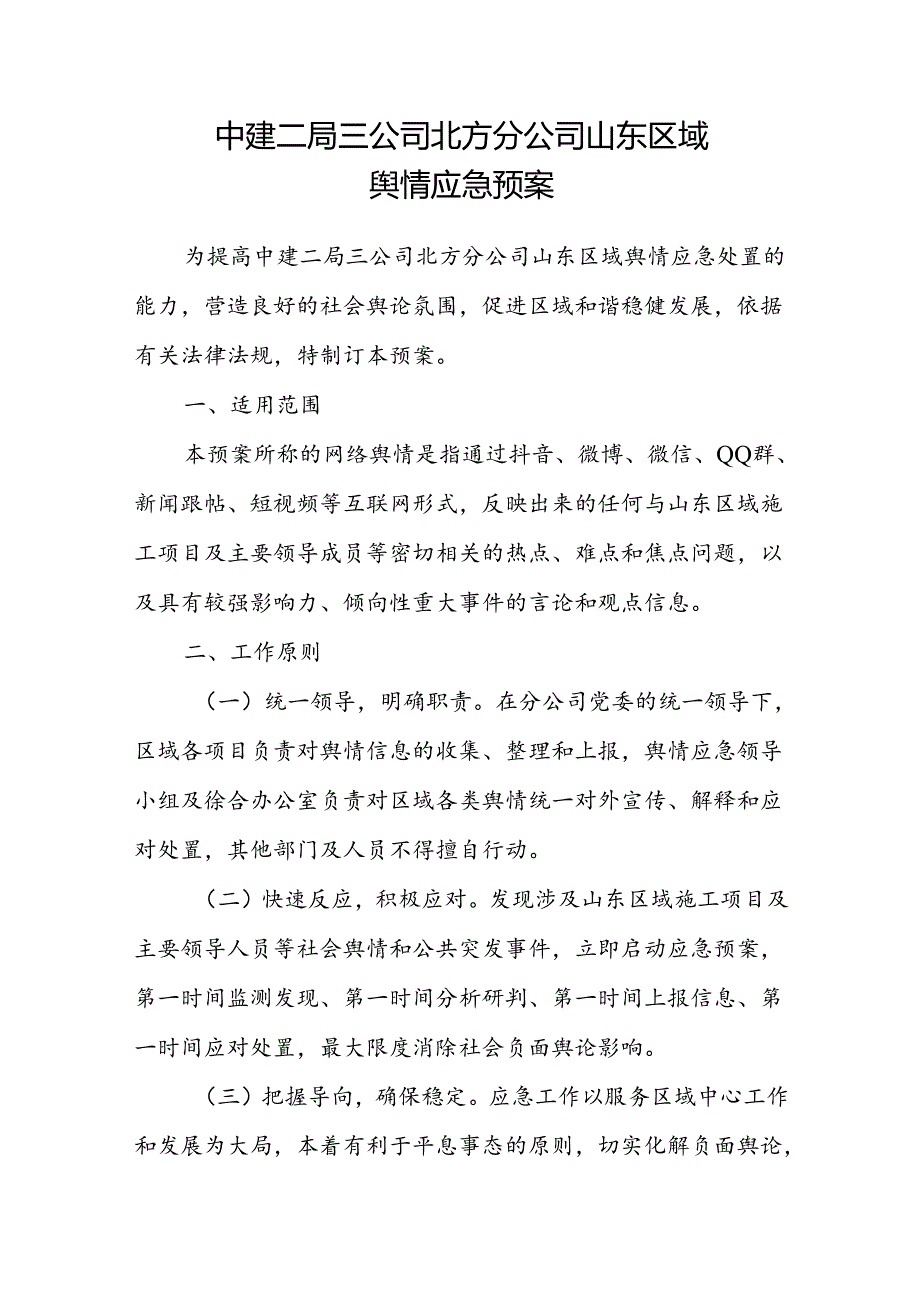 中建二局三公司北方分公司山东区域
舆情应急预案
为提高中建二局三公司北方分公司山东区域舆情应急处置的
能力，营造良好的社会舆论氛围，促进区域和谐稳健发展，依据
有关法律法规，特制订本预案。
一、适用范围
本预案所称的网络舆情是指通过抖音、微博、微信、QQ群、
新闻跟帖、短视频等互联网形式，反映出来的任何与山东区域施
工项目及主要领导成员等密切相关的热点、难点和焦点问题，以
及具有较强影响力、倾向性重大事件的言论和观点信息。
二、工作原则
（一）统一领导，明确职责。在分公司党委的统一领导下，
区域各项目负责对舆情信息的收集、整理和上报，舆情应急领导
小组及徐合办公室负责对区域各类舆情统一对外宣传、解释和应
对处置，其他部门及人员不得擅自行动。
（二）快速反应，积极应对。发现涉及山东区域施工项目及
主要领导人员等社会舆情和公共突发事件，立即启动应急预案，
第一时间监测发现、第一时间分析研判、第一时间上报信息、第
一时间应对处置，最大限度消除社会负面舆论影响。
（三）把握导向，确保稳定。应急工作以服务区域中心工作
和发展为大局，本着有利于平息事态的原则，切实化解负面舆论，